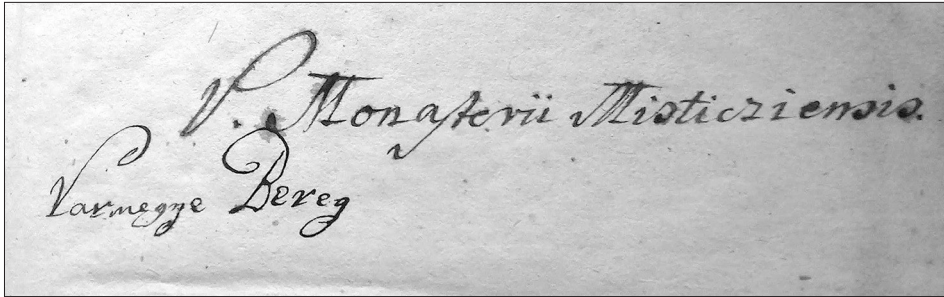 V. Monasterii Misticziensis.
Varmegye Bereg